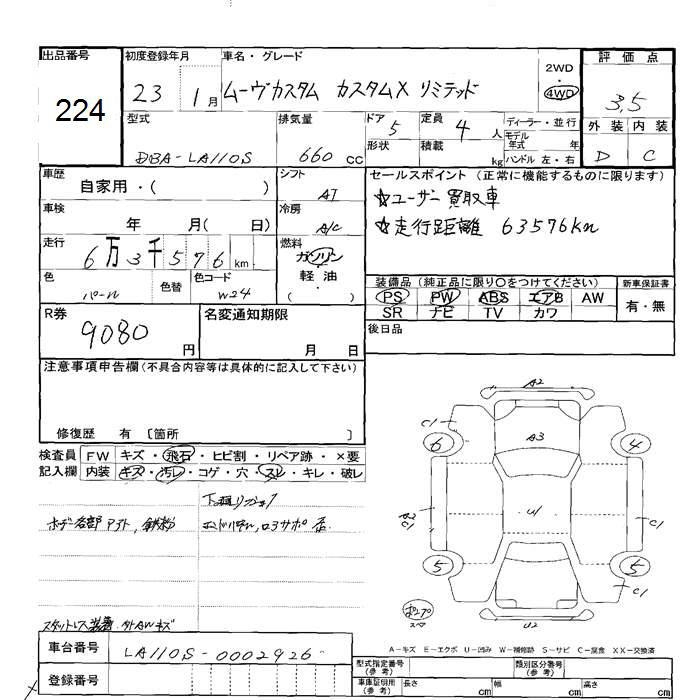 出品番号
224
初度登録年月
23 1月
車名・グレード
ムーヴカスタム カスタムX リミテッド
2WD
・
4WD
評価点
3.5
外装 内装
D C
型式
DBA-LA110S
排気量
660 cc
ドア
5
形状
定員
4 人
積載
kg
ディーラー・並行
モデル年式 年
ハンドル 左・右
車歴
自家用・( )
シフト
AT
車検
年 月( 日)
冷房
A/C
走行
6万3千576km
燃料
ガソリン
・
軽油
( )
色
パール
色替
色コード
W24
セールスポイント (正常に機能するものに限ります)
☆ユーザー買取車
☆走行距離 63576km
装備品 (純正品に限り〇をつけてください)
PS PW ABS エアB AW
SR ナビ TV カワ
新車保証書
有・無
後日品
R券
9080 円
名変通知期限
月 日
注意事項申告欄(不具合内容等は具体的に記入して下さい)
修復歴 有 〔箇所 〕
検査員記入欄
FW キズ・飛石・ヒビ割・リペア跡・×要
内装 キズ・汚レ・コゲ・穴・スレ・キレ・破レ
ボデー各部
スタットレス装着
A2
C1
6
4
A3
A2
C1
U1
C1
5
5
C1
U2
A-キズ E-エクボ U-凹み W-補修跡 S-サビ C-腐食 XX-交換済
車台番号
LA110S-0002926
登録番号
型式指定番号
(参考)
類別区分番号
(参考)
車庫証明用
(参考)
長さ cm
幅 cm
高さ cm